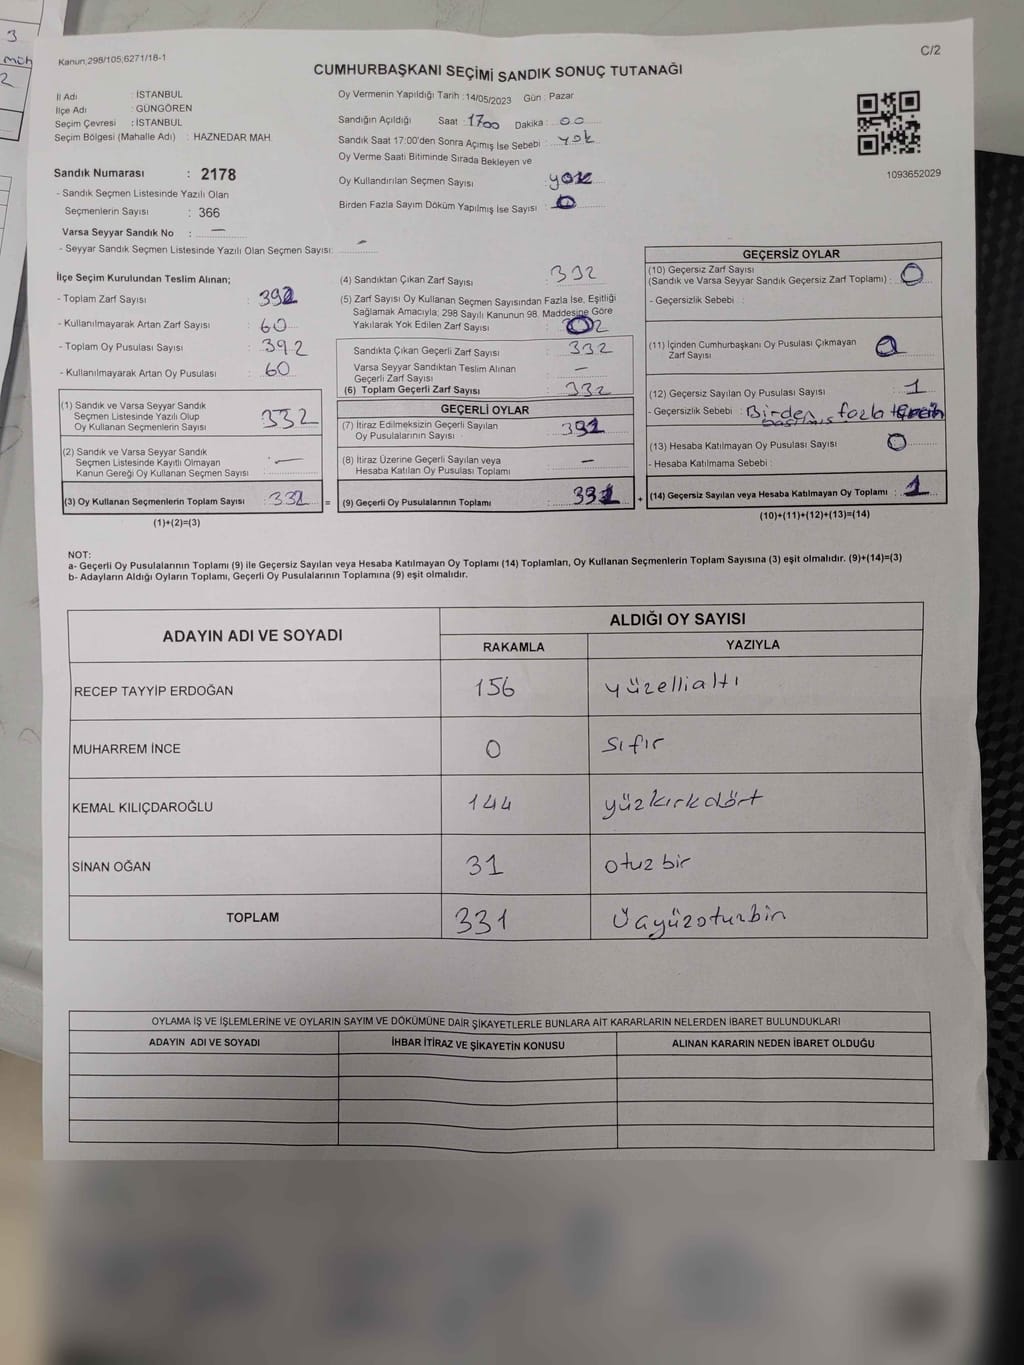 3
2
C/2
Kanun;298/105;6271/18-1
CUMHURBAŞKANI SEÇİMİ SANDIK SONUÇ TUTANAĞI
İl Adı : İSTANBUL
İlçe Adı : GÜNGÖREN
Seçim Çevresi : İSTANBUL
Seçim Bölgesi (Mahalle Adı) : HAZNEDAR MAH.
Sandık Numarası : 2178
- Sandık Seçmen Listesinde Yazılı Olan
Seçmenlerin Sayısı : 366
Varsa Seyyar Sandık No : —
- Seyyar Sandık Seçmen Listesinde Yazılı Olan Seçmen Sayısı: —
Oy Vermenin Yapıldığı Tarih : 14/05/2023 Gün : Pazar
Sandığın Açıldığı Saat : 1700 Dakika : 00
Sandık Saat 17:00'den Sonra Açımış İse Sebebi : yok
Oy Verme Saati Bitiminde Sırada Bekleyen ve
Oy Kullandırılan Seçmen Sayısı : yok
Birden Fazla Sayım Döküm Yapılmış İse Sayısı : 0
1093652029
İlçe Seçim Kurulundan Teslim Alınan;
- Toplam Zarf Sayısı : 392
- Kullanılmayarak Artan Zarf Sayısı : 60
- Toplam Oy Pusulası Sayısı : 392
- Kullanılmayarak Artan Oy Pusulası : 60
(1) Sandık ve Varsa Seyyar Sandık
Seçmen Listesinde Yazılı Olup
Oy Kullanan Seçmenlerin Sayısı : 332
(2) Sandık ve Varsa Seyyar Sandık
Seçmen Listesinde Kayıtlı Olmayan
Kanun Gereği Oy Kullanan Seçmen Sayısı : —
(3) Oy Kullanan Seçmenlerin Toplam Sayısı : 332 =
(1)+(2)=(3)
(4) Sandıktan Çıkan Zarf Sayısı : 332
(5) Zarf Sayısı Oy Kullanan Seçmen Sayısından Fazla İse, Eşitliği
Sağlamak Amacıyla; 298 Sayılı Kanunun 98. Maddesine Göre
Yakılarak Yok Edilen Zarf Sayısı :
Sandıkta Çıkan Geçerli Zarf Sayısı : 332
Varsa Seyyar Sandıktan Teslim Alınan
Geçerli Zarf Sayısı : —
(6) Toplam Geçerli Zarf Sayısı : 332
GEÇERLİ OYLAR
(7) İtiraz Edilmeksizin Geçerli Sayılan
Oy Pusulalarının Sayısı : 331
(8) İtiraz Üzerine Geçerli Sayılan veya
Hesaba Katılan Oy Pusulası Toplamı : —
(9) Geçerli Oy Pusulalarının Toplamı : 331 +
GEÇERSİZ OYLAR
(10) Geçersiz Zarf Sayısı
(Sandık ve Varsa Seyyar Sandık Geçersiz Zarf Toplamı) : 0
- Geçersizlik Sebebi :
(11) İçinden Cumhurbaşkanı Oy Pusulası Çıkmayan
Zarf Sayısı : 0
(12) Geçersiz Sayılan Oy Pusulası Sayısı : 1
- Geçersizlik Sebebi : Birden fazla tercih
basılmış
(13) Hesaba Katılmayan Oy Pusulası Sayısı : 0
- Hesaba Katılmama Sebebi :
(14) Geçersiz Sayılan veya Hesaba Katılmayan Oy Toplamı : 1
(10)+(11)+(12)+(13)=(14)
NOT:
a- Geçerli Oy Pusulalarının Toplamı (9) ile Geçersiz Sayılan veya Hesaba Katılmayan Oy Toplamı (14) Toplamları, Oy Kullanan Seçmenlerin Toplam Sayısına (3) eşit olmalıdır. (9)+(14)=(3)
b- Adayların Aldığı Oyların Toplamı, Geçerli Oy Pusulalarının Toplamına (9) eşit olmalıdır.
ADAYIN ADI VE SOYADI
ALDIĞI OY SAYISI
RAKAMLA YAZIYLA
RECEP TAYYİP ERDOĞAN 156 yüzellialtı
MUHARREM İNCE 0 sıfır
KEMAL KILIÇDAROĞLU 144 yüzkırkdört
SİNAN OĞAN 31 otuz bir
TOPLAM 331 Üçyüzotuzbir
OYLAMA İŞ VE İŞLEMLERİNE VE OYLARIN SAYIM VE DÖKÜMÜNE DAİR ŞİKAYETLERLE BUNLARA AİT KARARLARIN NELERDEN İBARET BULUNDUKLARI
ADAYIN ADI VE SOYADI İHBAR İTİRAZ VE ŞİKAYETİN KONUSU ALINAN KARARIN NEDEN İBARET OLDUĞU